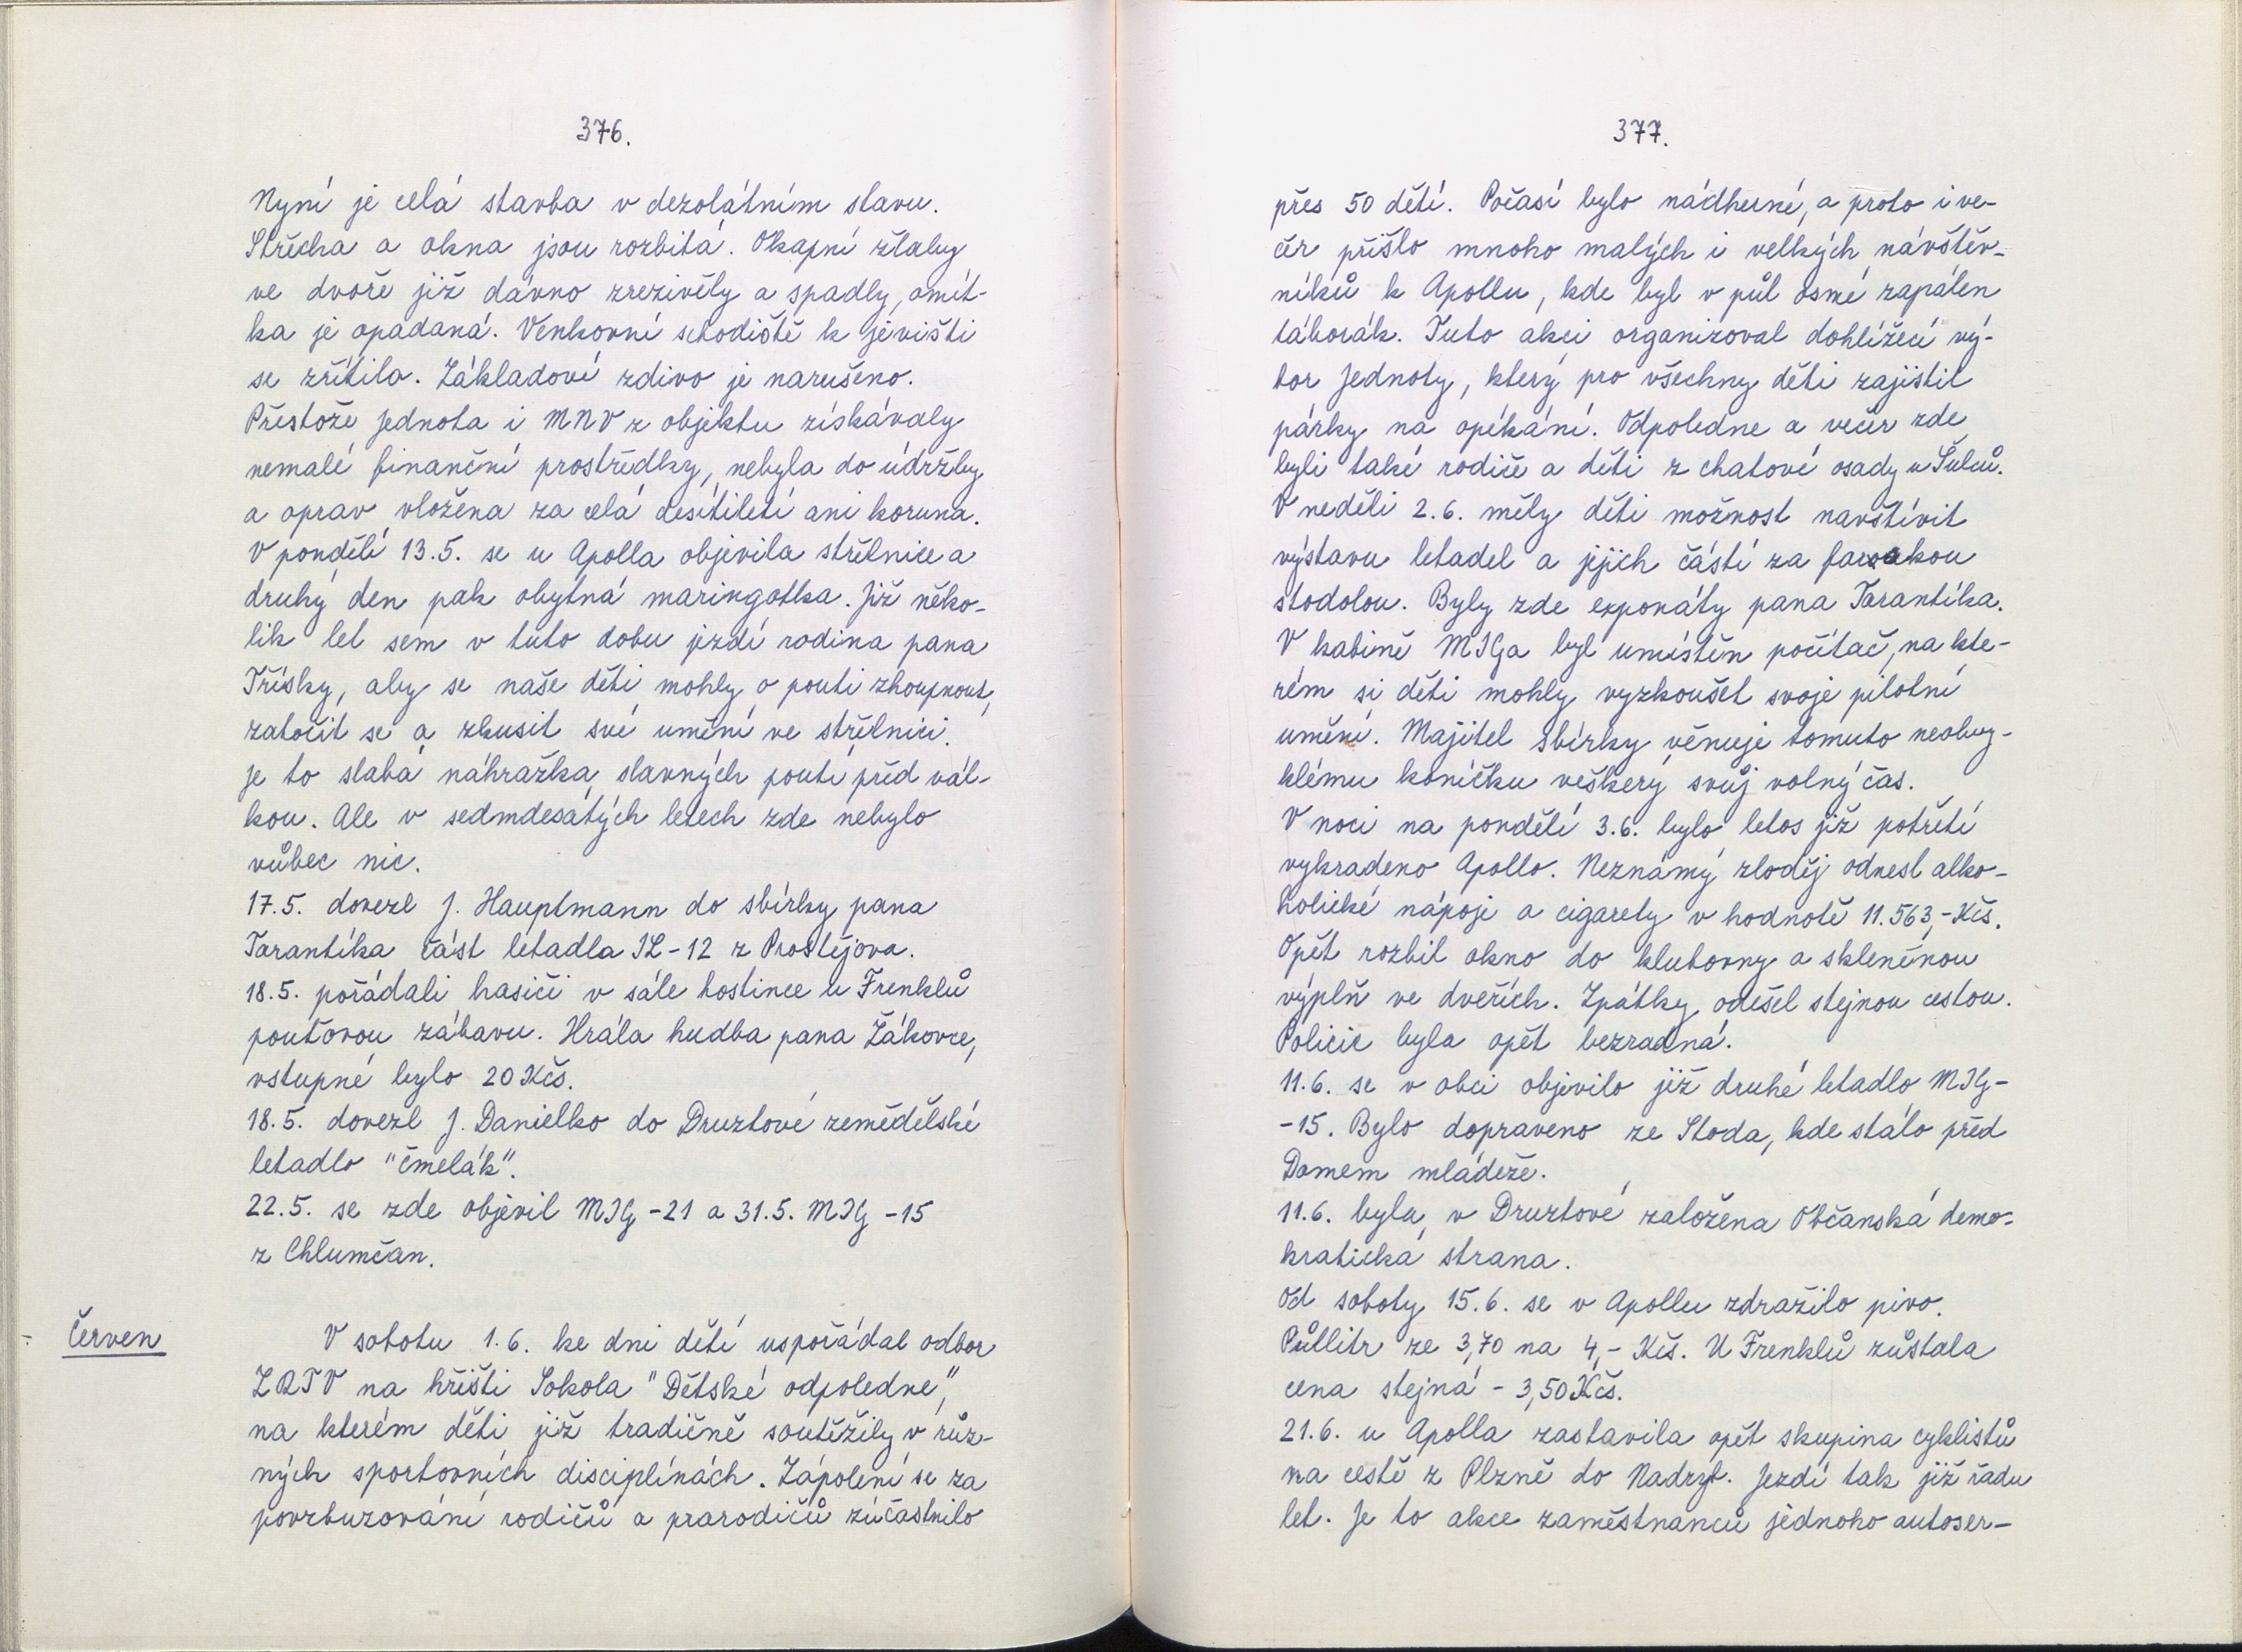 376.
Nyní je celá stavba v dezolátním stavu.
Střecha a okna jsou rozbitá. Okapní žlaby
ve dvoře již dávno zrezivěly a spadly, omít-
ka je opadaná. Venkovní schodiště k jevišti
se zřítilo. Základové zdivo je narušeno.
Přestože Jednota i MNV z objektu získávaly
nemalé finanční prostředky, nebyla do údržby
a oprav vložena za celá desítiletí ani koruna.
V pondělí 13.5. se u Apolla objevila střelnice a
druhý den pak obytná maringotka. Již něko-
lik let sem v tuto dobu jezdí rodina pana
Třísky, aby se naše děti mohly o pouti zhoupnout,
zatočit se a zkusit své umění ve střelnici.
Je to slabá náhražka slavných poutí před vál-
kou. Ale v sedmdesátých letech zde nebylo
vůbec nic.
17.5. dovezl J. Hauptmann do sbírky pana
Tarantíka část letadla IL-12 z Prostějova.
18.5. pořádali hasiči v sále hostince u Frenklů
pouťovou zábavu. Hrála hudba pana Žákovce,
vstupné bylo 20 Kčs.
18.5. dovezl J. Danielko do Druztové zemědělské
letadlo "čmelák".
22.5. se zde objevil MIG -21 a 31.5. MIG -15
z Chlumčan.
Červen
V sobotu 1.6. ke dni dětí uspořádal odbor
ZRTV na hřišti Sokola "Dětské odpoledne",
na kterém děti již tradičně soutěžily v růz-
ných sportovních disciplínách. Zápolení se za
povzbuzování rodičů a prarodičů zúčastnilo
377.
přes 50 dětí. Počasí bylo nádherné, a proto i ve-
čer přišlo mnoho malých i velkých návštěv-
níků k Apollu, kde byl v půl osmé zapálen
táborák. Tuto akci organizoval dohlížecí vý-
bor Jednoty, který pro všechny děti zajistil
párky na opékání. Odpoledne a večer zde
byli také rodiče a děti z chatové osady u Šulců.
V neděli 2.6. měly děti možnost navštívit
výstavu letadel a jejich částí za farskou
stodolou. Byly zde exponáty pana Tarantíka.
V kabině MIGa byl umístěn počítač, na kte-
rém si děti mohly vyzkoušet svoje pilotní
umění. Majitel sbírky věnuje tomuto neoby-
klému koníčku veškerý svůj volný čas.
V noci na pondělí 3.6. bylo letos již potřetí
vykradeno Apollo. Neznámý zloděj odnesl alko-
holické nápoje a cigarety v hodnotě 11.563,- Kčs.
Opět rozbil okno do klubovny a skleněnou
výplň ve dveřích. Zpátky odešel stejnou cestou.
Policie byla opět bezradná.
11.6. se v obci objevilo již druhé letadlo MIG-
-15. Bylo dopraveno ze Stoda, kde stálo před
Domem mládeže.
11.6. byla v Druztové založena Občanská demo-
kratická strana.
Od soboty 15.6. se v Apollu zdražilo pivo.
Půllitr ze 3,70 na 4,- Kčs. U Frenklů zůstala
cena stejná - 3,50 Kčs.
21.6. u Apolla zastavila opět skupina cyklistů
na cestě z Plzně do Nadryb. Jezdí tak již řadu
let. Je to akce zaměstnanců jednoho autoser-